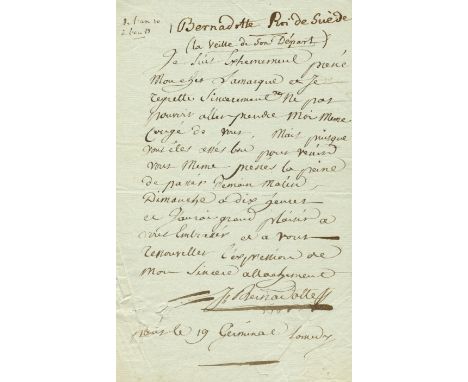 Bernadotte Roi de Suède
(la veille de son Départ)
Je suis Extremement pressé
Mon cher Lamarque et Je
regrette Sincerement ne pas
pouvoir aller prendre Moi Meme
Congé de vous, Mais puisque
vous étes assez bon pour venir
vous Même prenés la peine
de passer Deman Matin,
Dimanche a dix heures
et J'aurai grand plaisir a
vous Embrasser et a vous
renouveller l'expression de
Mon Sincere attachement
J Bernadotte
le 19 Germinal Samedy